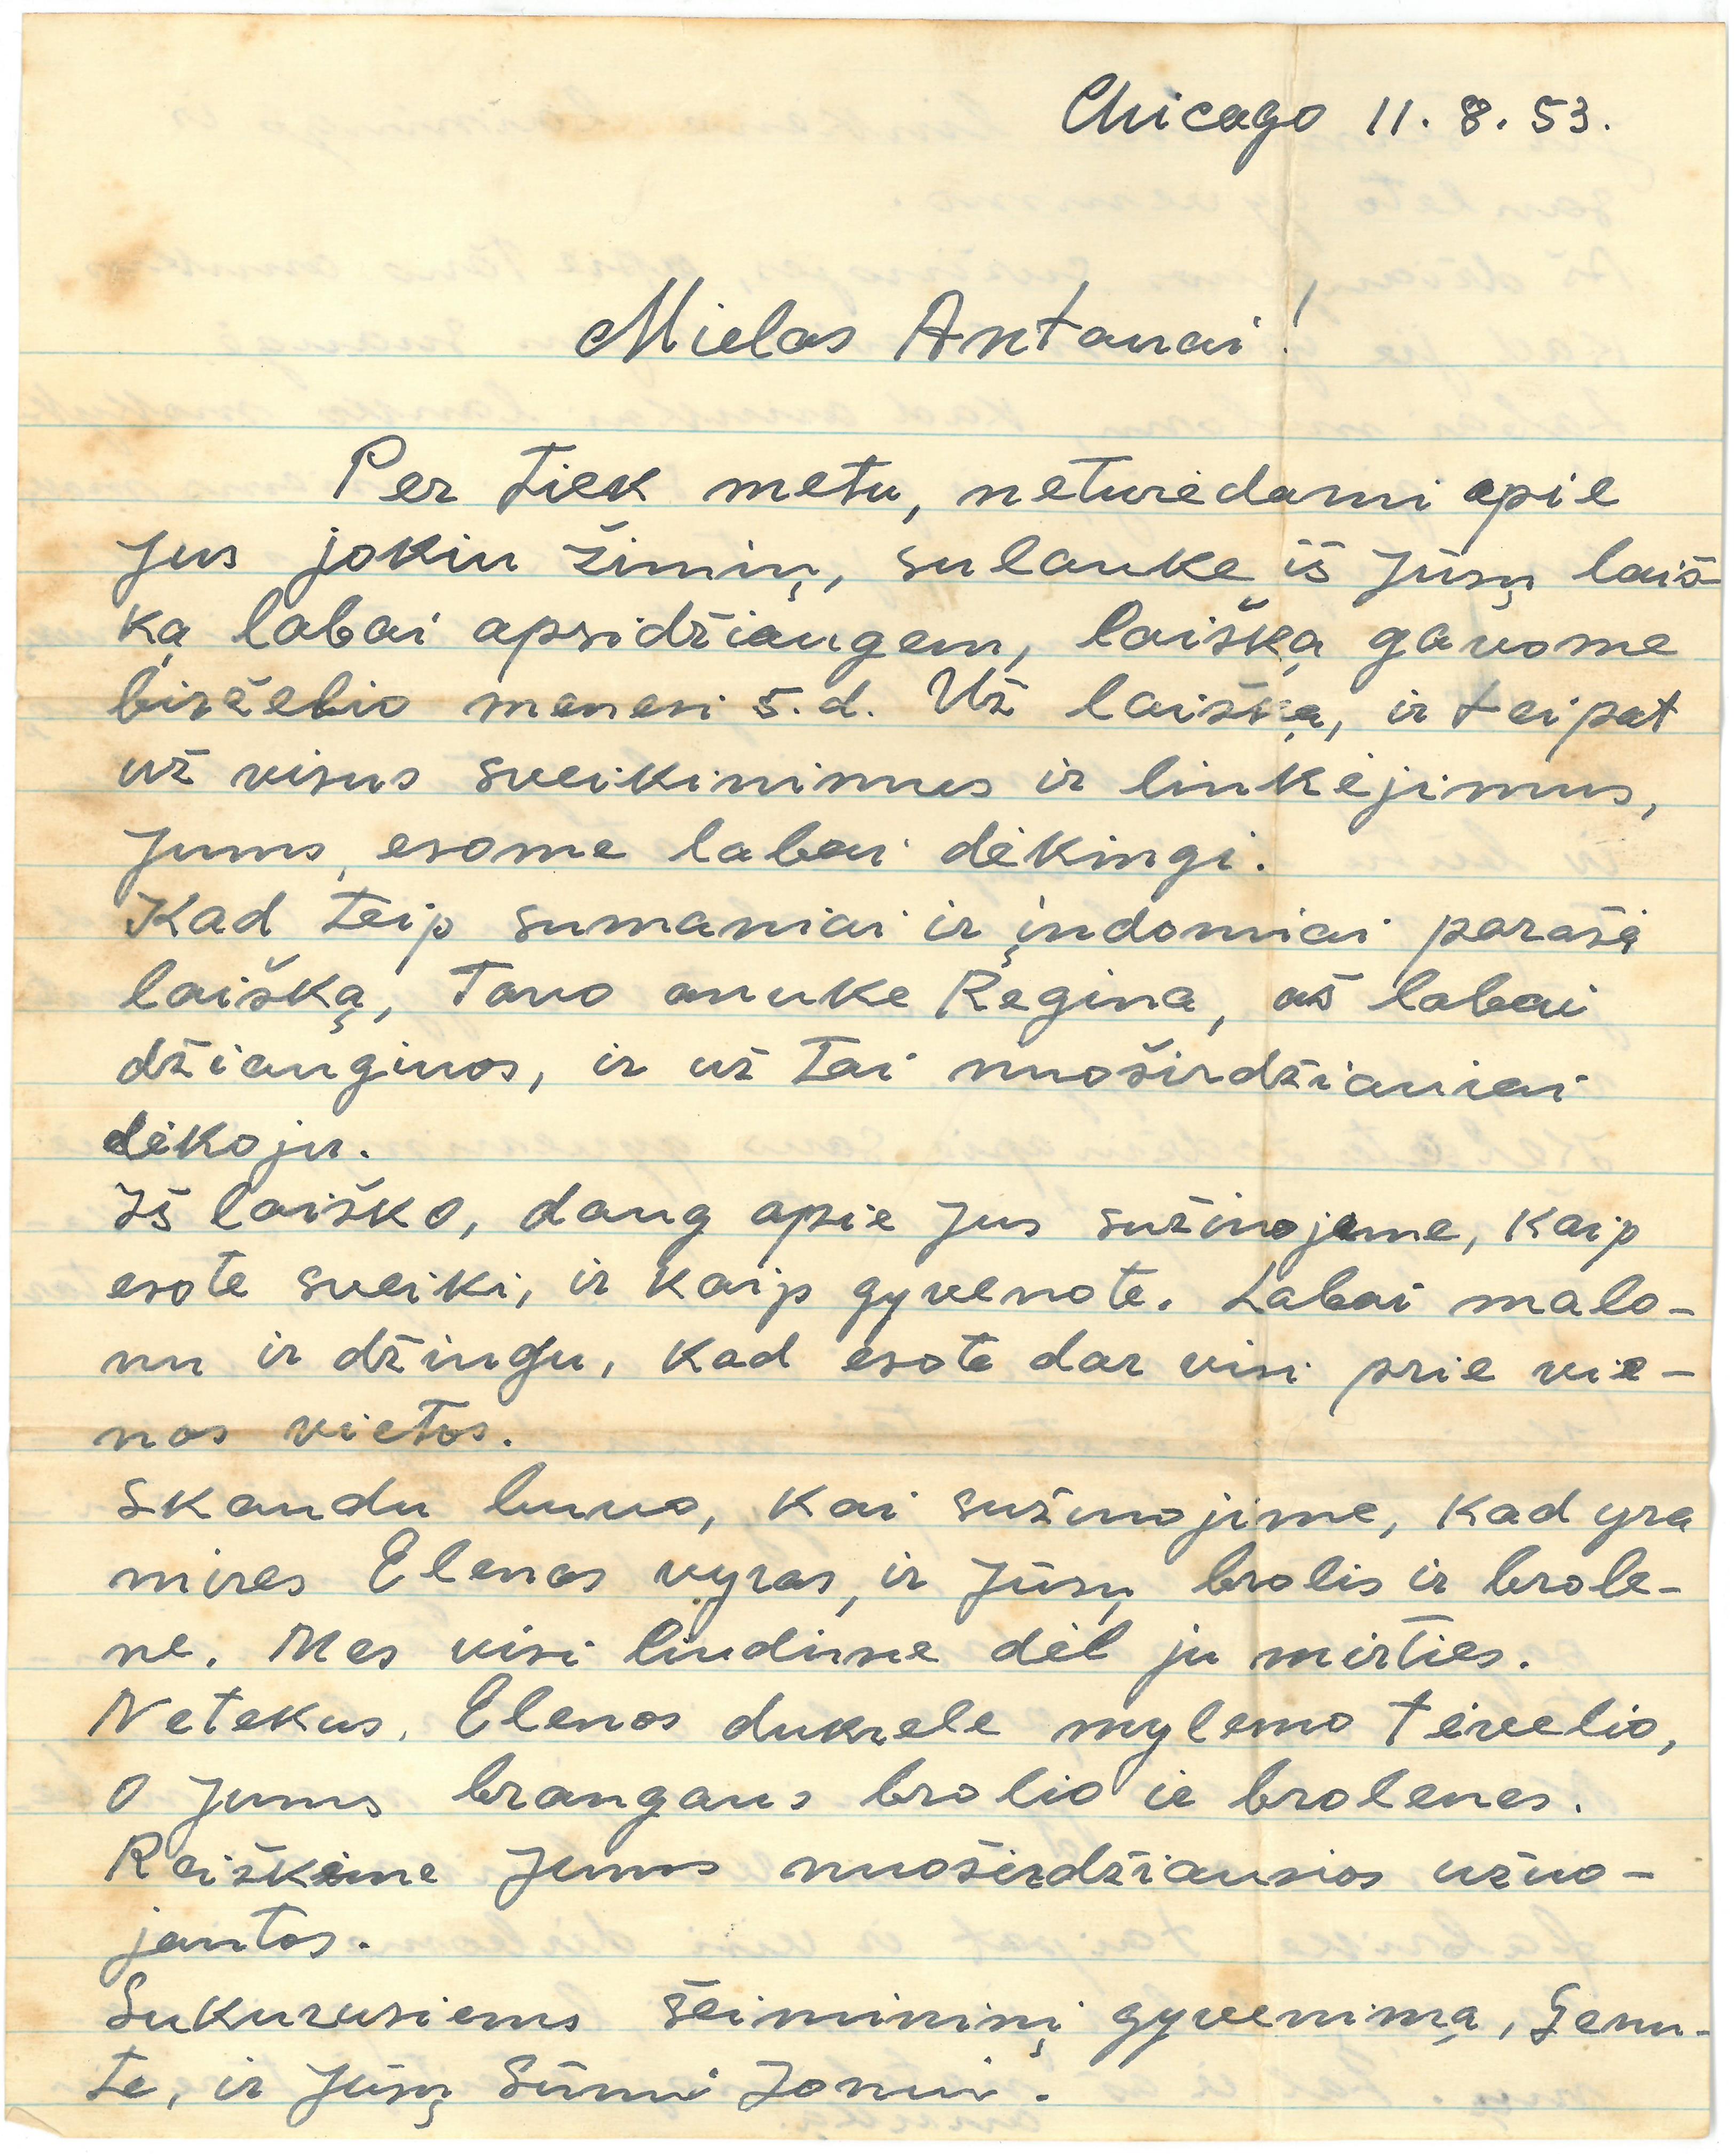 Chicago 11.8.53.
Mielas Antanai!
Per tiek metu, neturėdami apie
Jus jokiu žinių, sulauke iš Jūsų laiš-
ką labai apsidžiaugem, laišką gavome
birželio menesi 5.d. Už laišką, ir teipat
už visus sveikinimus ir linkėjimus,
Jums, esome labai dėkingi.
Kad teip sumaniai ir įndomiai parašė
laišką, Tavo anuke Regina, aš labai
džiauginos, ir už tai nuoširdžiauiai
dėkoju.
Iš laiško, daug apie Jus sužinojeme, kaip
esote sveiki, ir kaip gyvenote. Labai malo-
nu ir džiugu, kad esote dar visi prie vie-
nos vietos.
Skaudu buvo, kai sužinojime, kad yra
mires Elenos vyras, ir Jūsų brolis ir brole-
ne. Mes visi liudime dėl ju mirties.
Netekus, Elenos dukrele mylemo tėvelio,
o Jums brangaus brolio ir brolenes.
Reiškime Jums nuoširdžiausios užuo-
jautos.
Sukurusiems šeimininį gyvenimą, Genu-
te, ir Jūsų Sūnui Jonui.